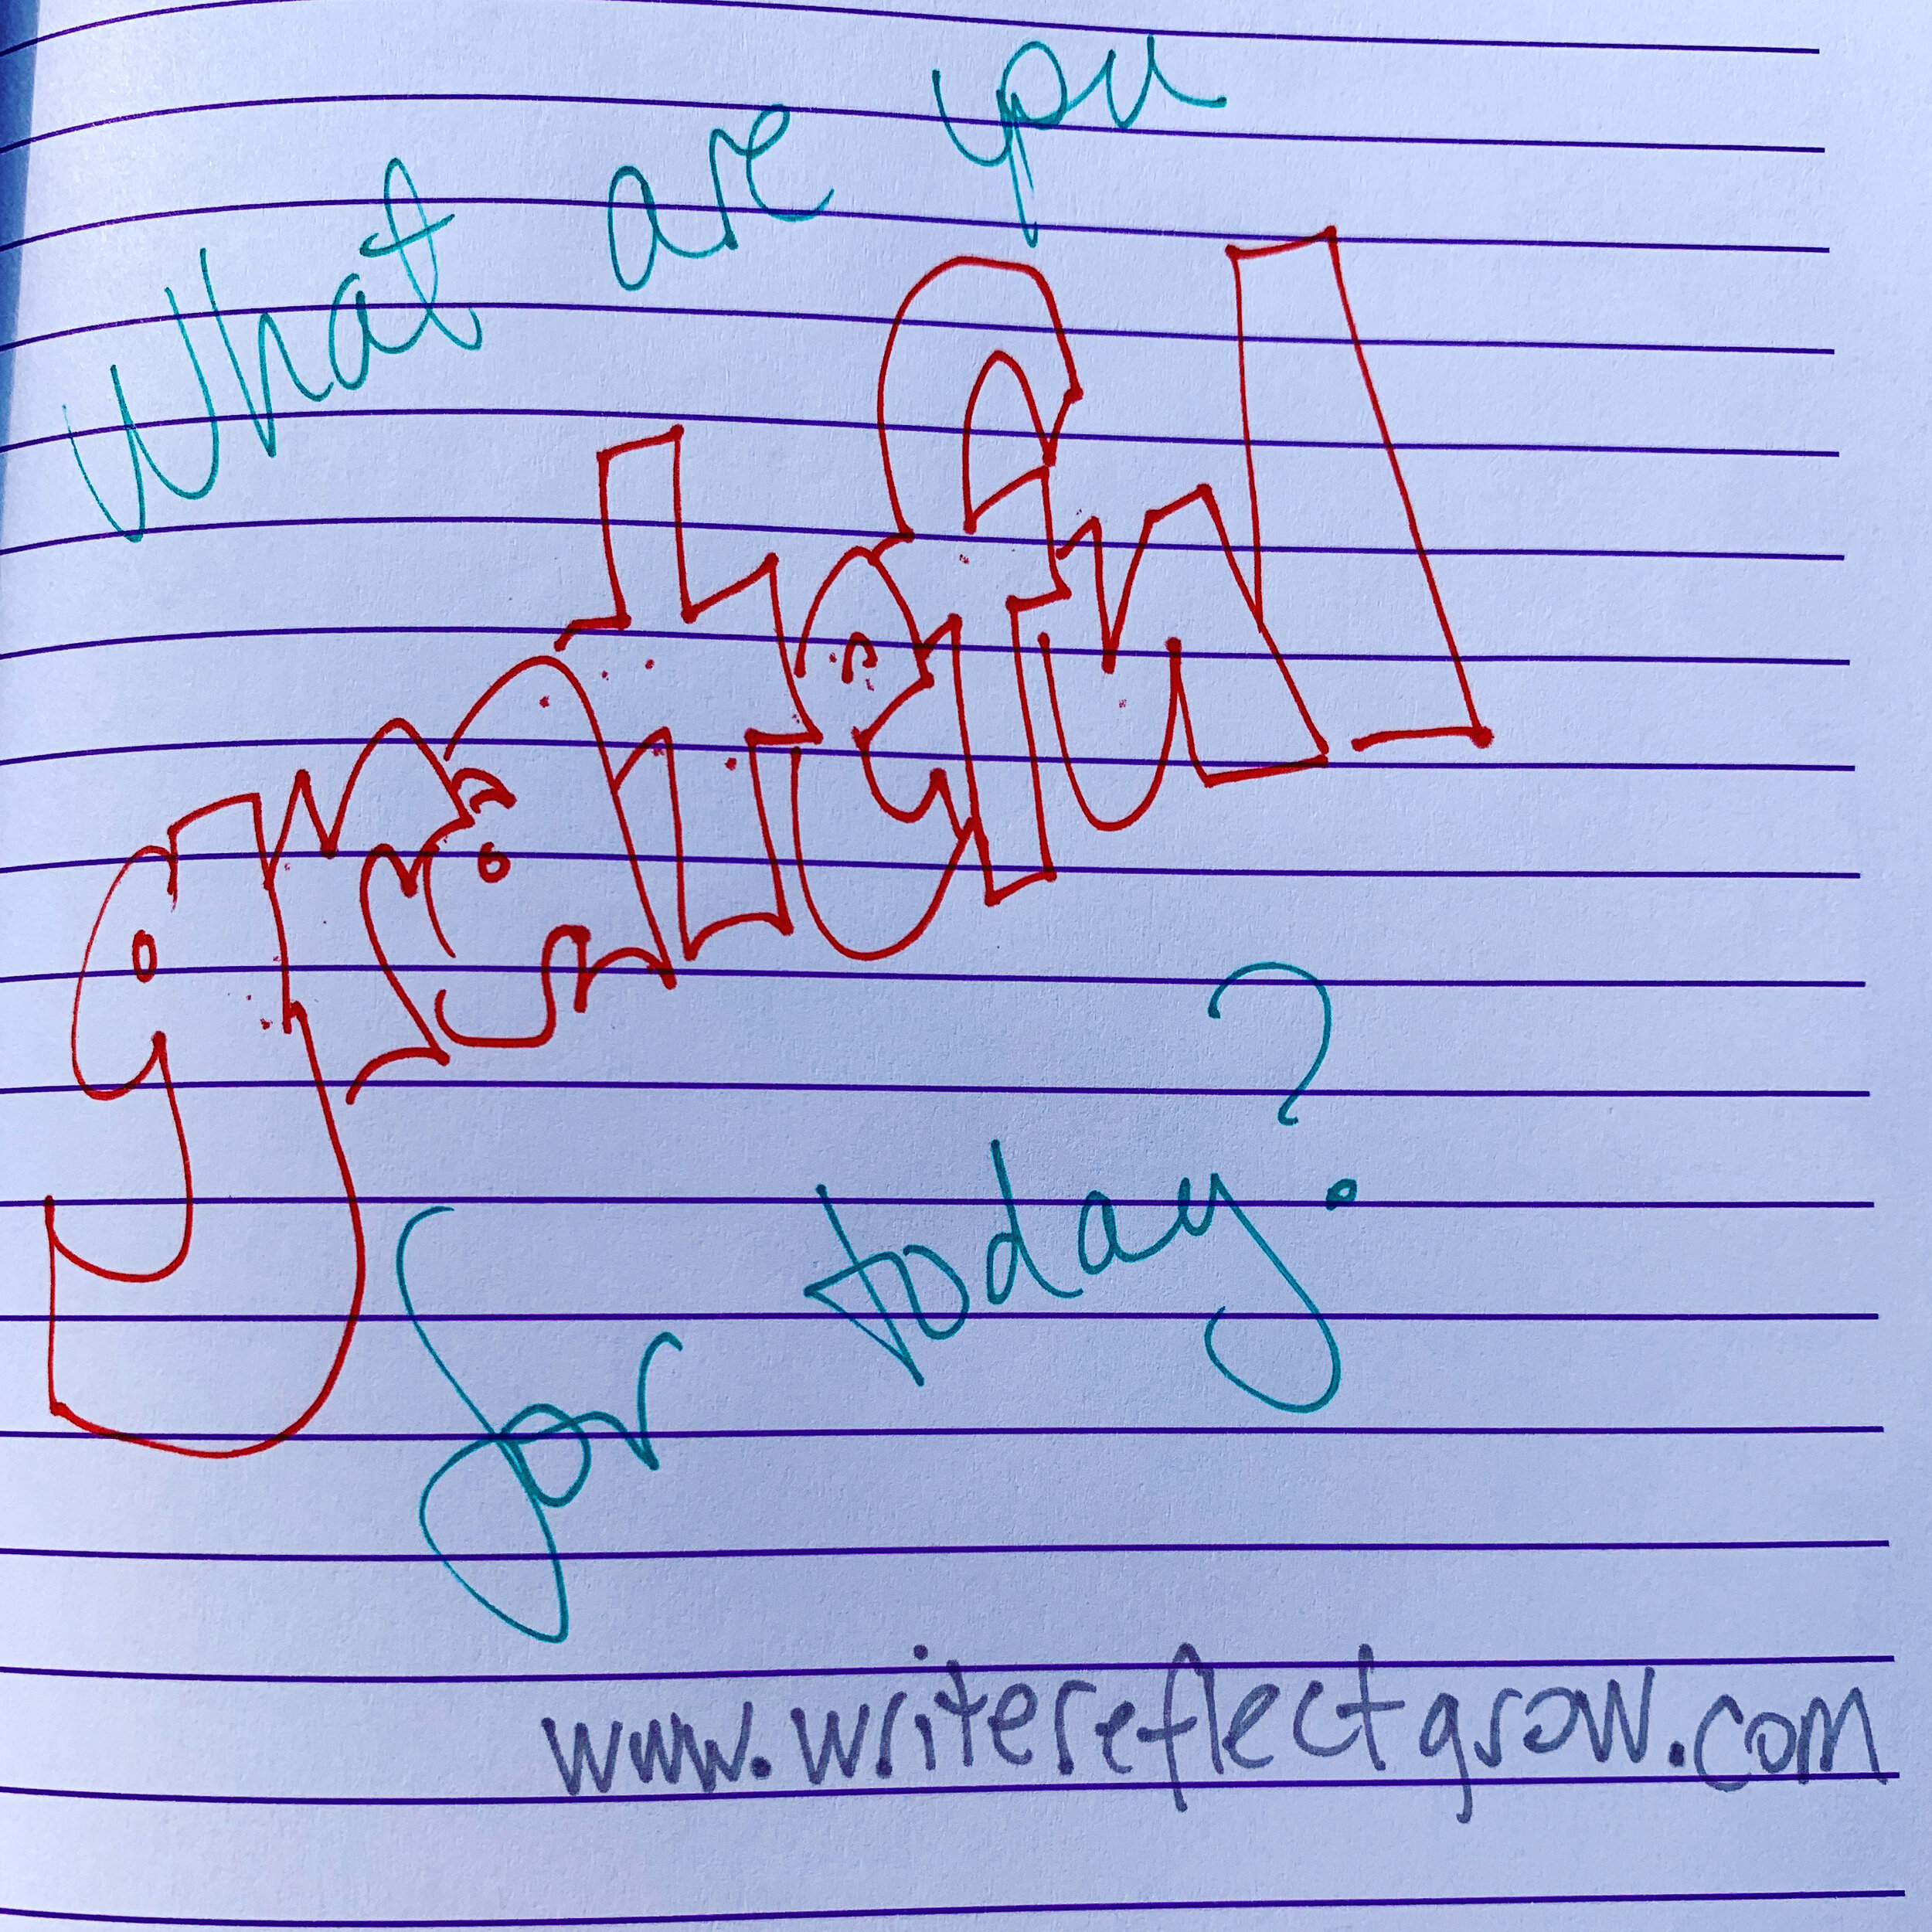 What are you
grateful
for today?
www.writereflectgrow.com